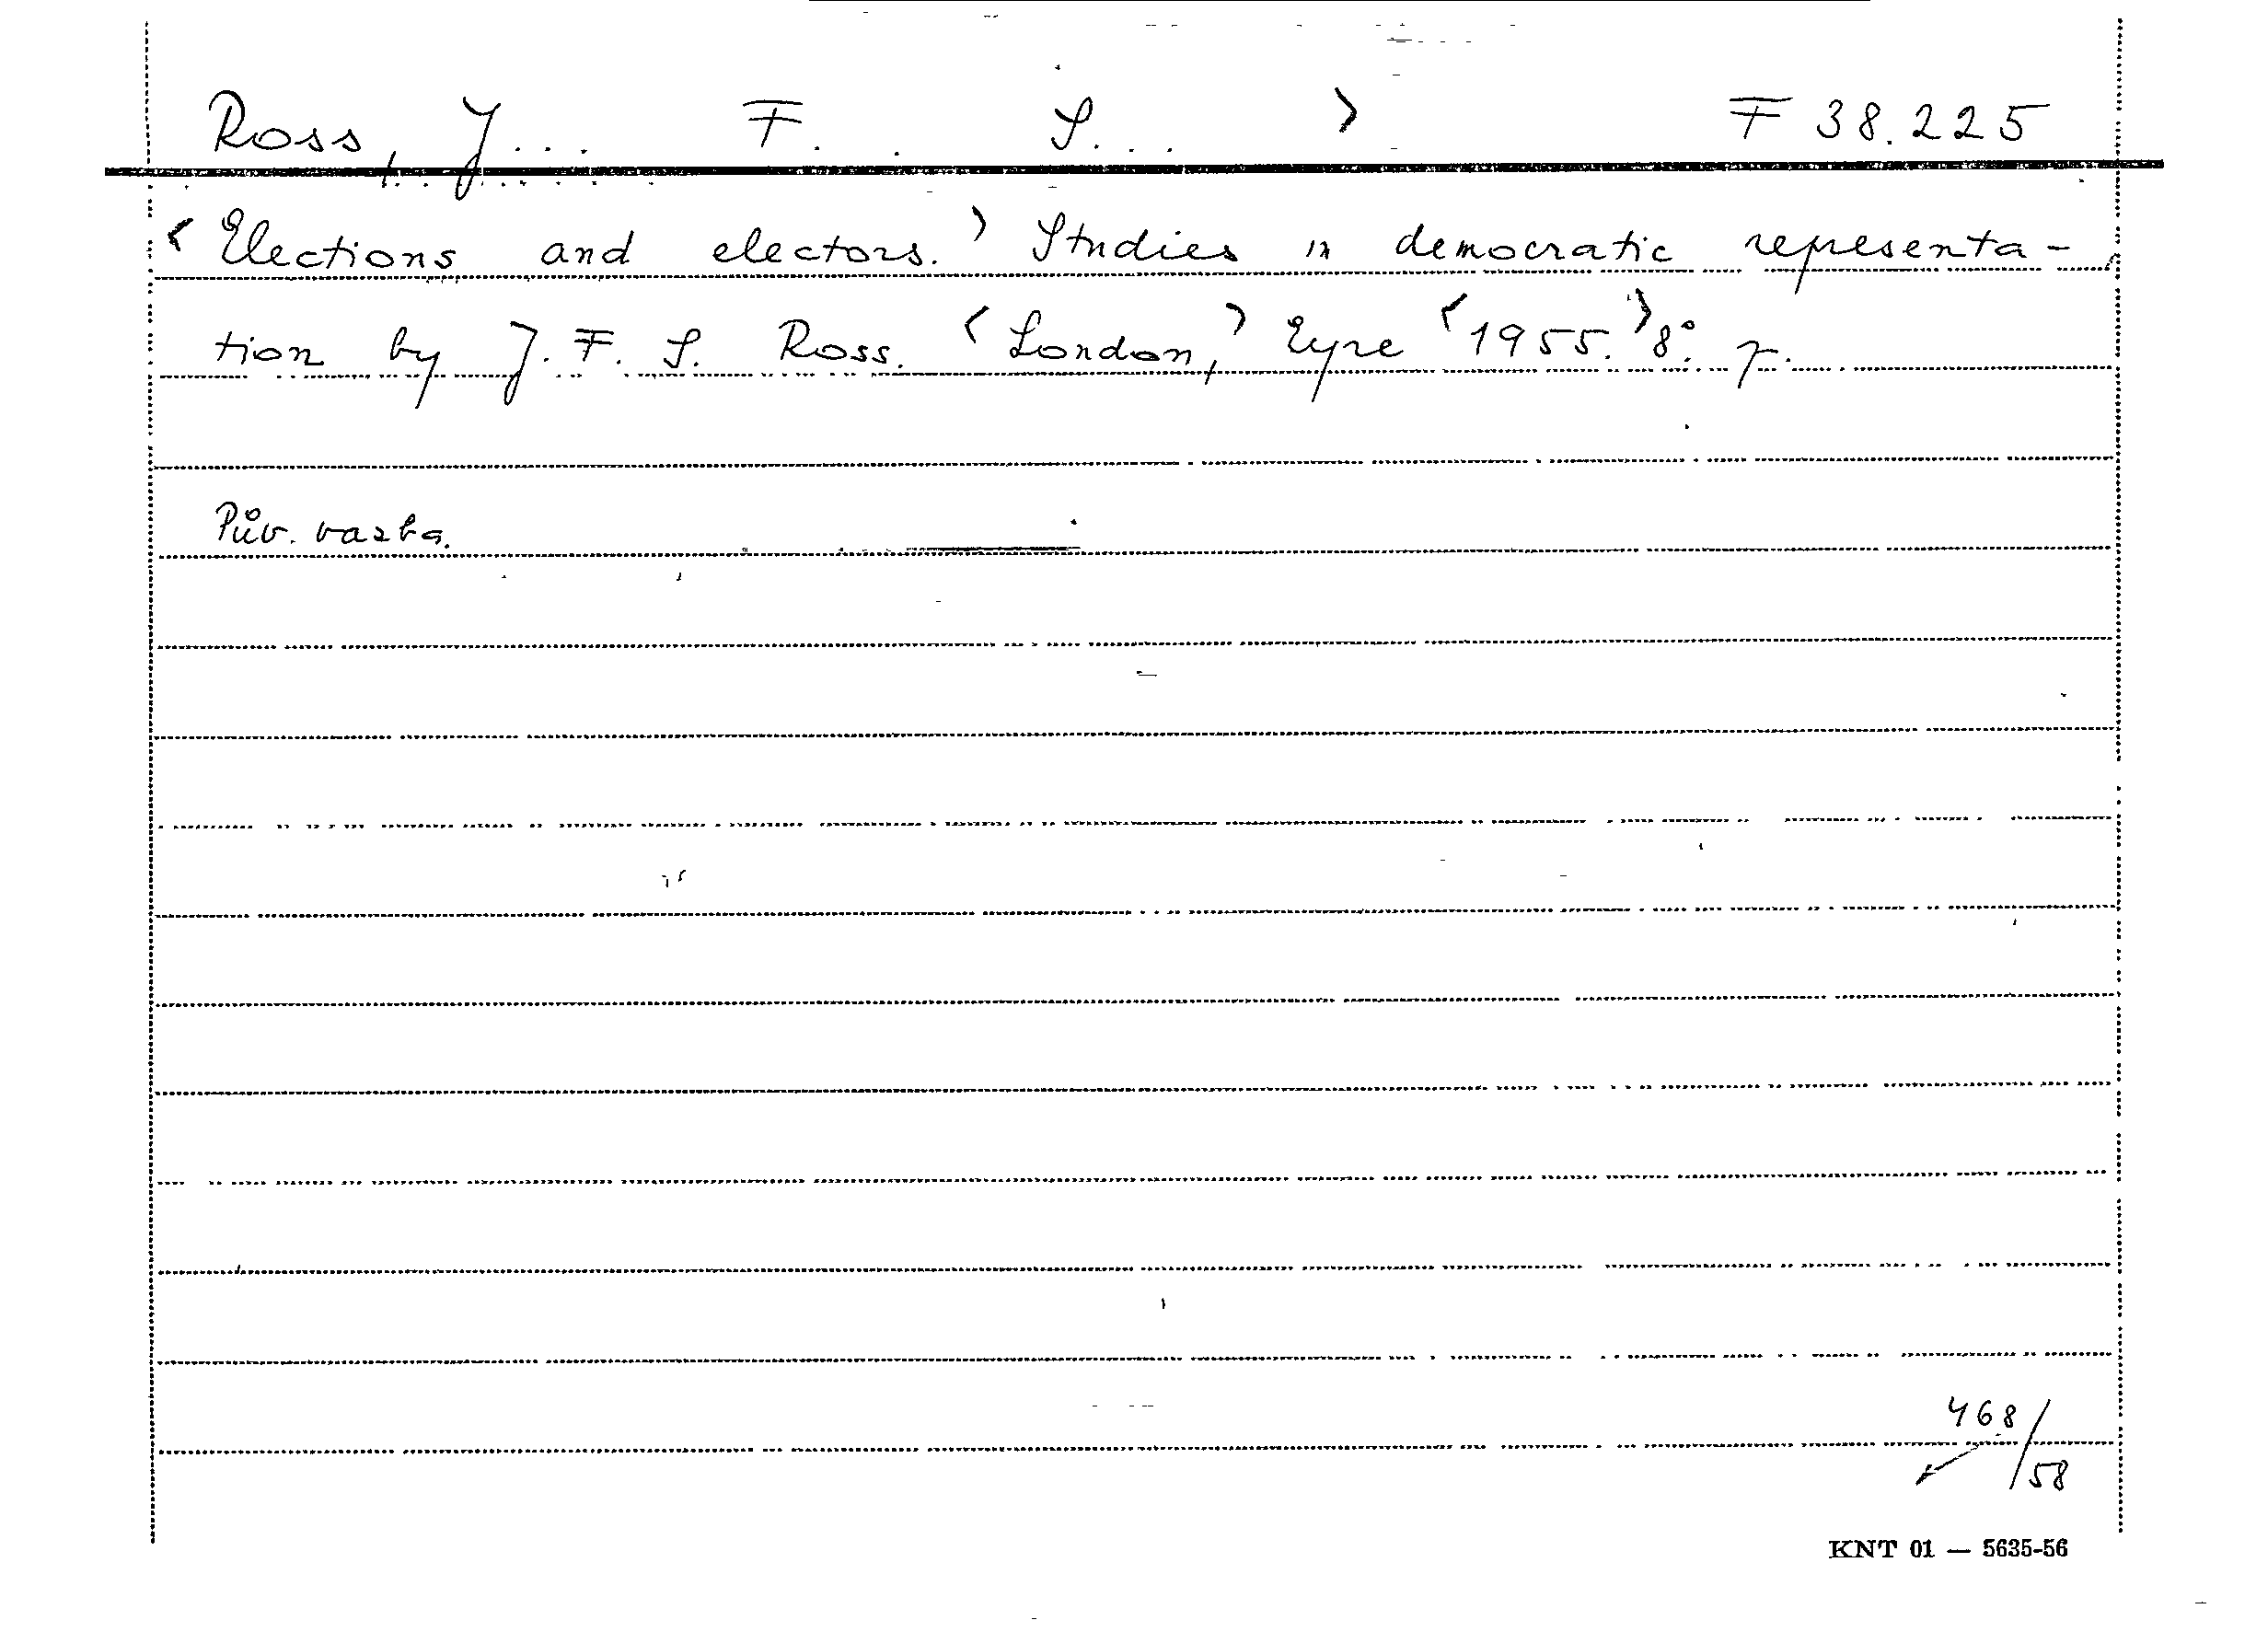 Ross, J... F. . S... > F 38.225
< Elections and electors. > Studies in democratic representa-
tion by J. F. S. Ross. < London, > Eyre < 1955. > 8°.
Pův. vazba.
468/58
KNT 01 — 5635-56